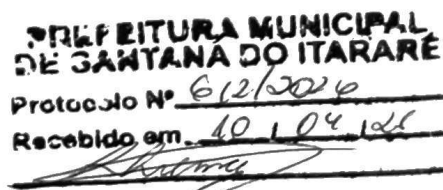 PREFEITURA MUNICIPAL
DE SANTANA DO ITARARÉ
Protocolo Nº 612/2026
Recebido em 10 / 04 / 26